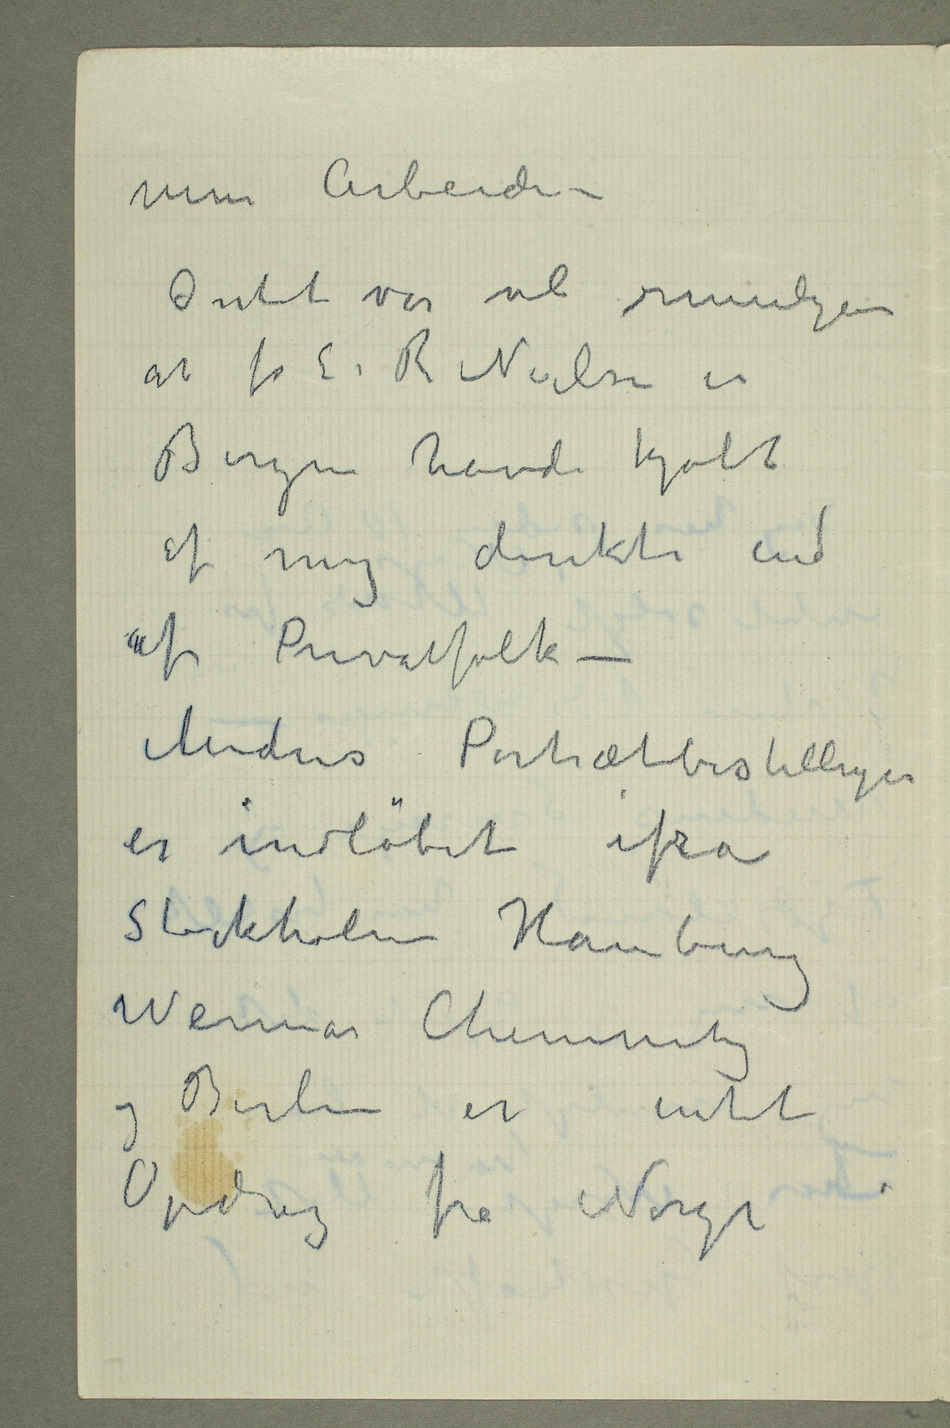 mine Arbeider –
Intet var vel rimeligere
at fo E. R Nielsen i
Bergen havde kjøbt
af mig direkte end
af Privatfolk –
Medens Portrætbestillinger
er indløbet ifra
Stockholm Hamburg
Weimar Chemnitz
og Berlin er intet
Opdrag fra Norge